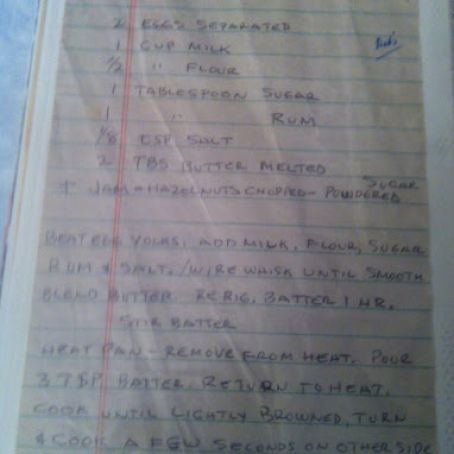 2 EGGS SEPARATED
1 CUP MILK
1/2 " FLOUR
1 TABLESPOON SUGAR
1 " RUM
1/8 TSP SALT
2 TBS BUTTER MELTED
JAM - HAZELNUTS CHOPPED - POWDERED SUGAR
BEAT EGG YOLKS, ADD MILK, FLOUR, SUGAR
RUM & SALT, /WIRE WHISK UNTIL SMOOTH
BLEND BUTTER REFRIG. BATTER 1 HR.
STIR BATTER
HEAT PAN - REMOVE FROM HEAT. POUR
3 TSP. BATTER. RETURN TO HEAT.
COOK UNTIL LIGHTLY BROWNED, TURN
& COOK A FEW SECONDS ON OTHER SIDE